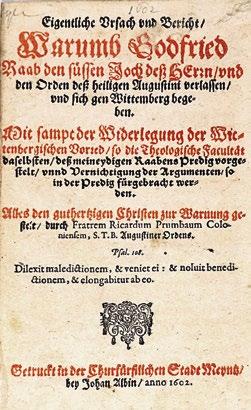 1602
Eigentliche Vrsach vnd Bericht/
Warumb Godfried
Raab den süssen Joch deß HErrn/vnd
den Orden deß heiligen Augustini verlassen/
vnd sich gen Wittemberg bege-
ben.
Mit sampt der Widerlegung der Wit-
tenbergischen Vorred/so die Theologische Facultät
daselbsten/deß meineydigen Raabens Predig vorge-
stelt/vnnd Vernichtigung der Argumenten/so
in der Predig fürgebracht wer-
den.
Alles den guthertzigen Christen zur Warnung ge-
stelt/durch Fratrem Ricardum Prumbaum Colo-
niensem, S.T.B. Augustiner Ordens.
Psal. 108.
Dilexit maledictionem, & veniet ei: & noluit bene-
dictionem, & elongabitur ab eo.
Getruckt in der Churfürstlichen Stadt Meyntz/
bey Johan Albin/anno 1602.